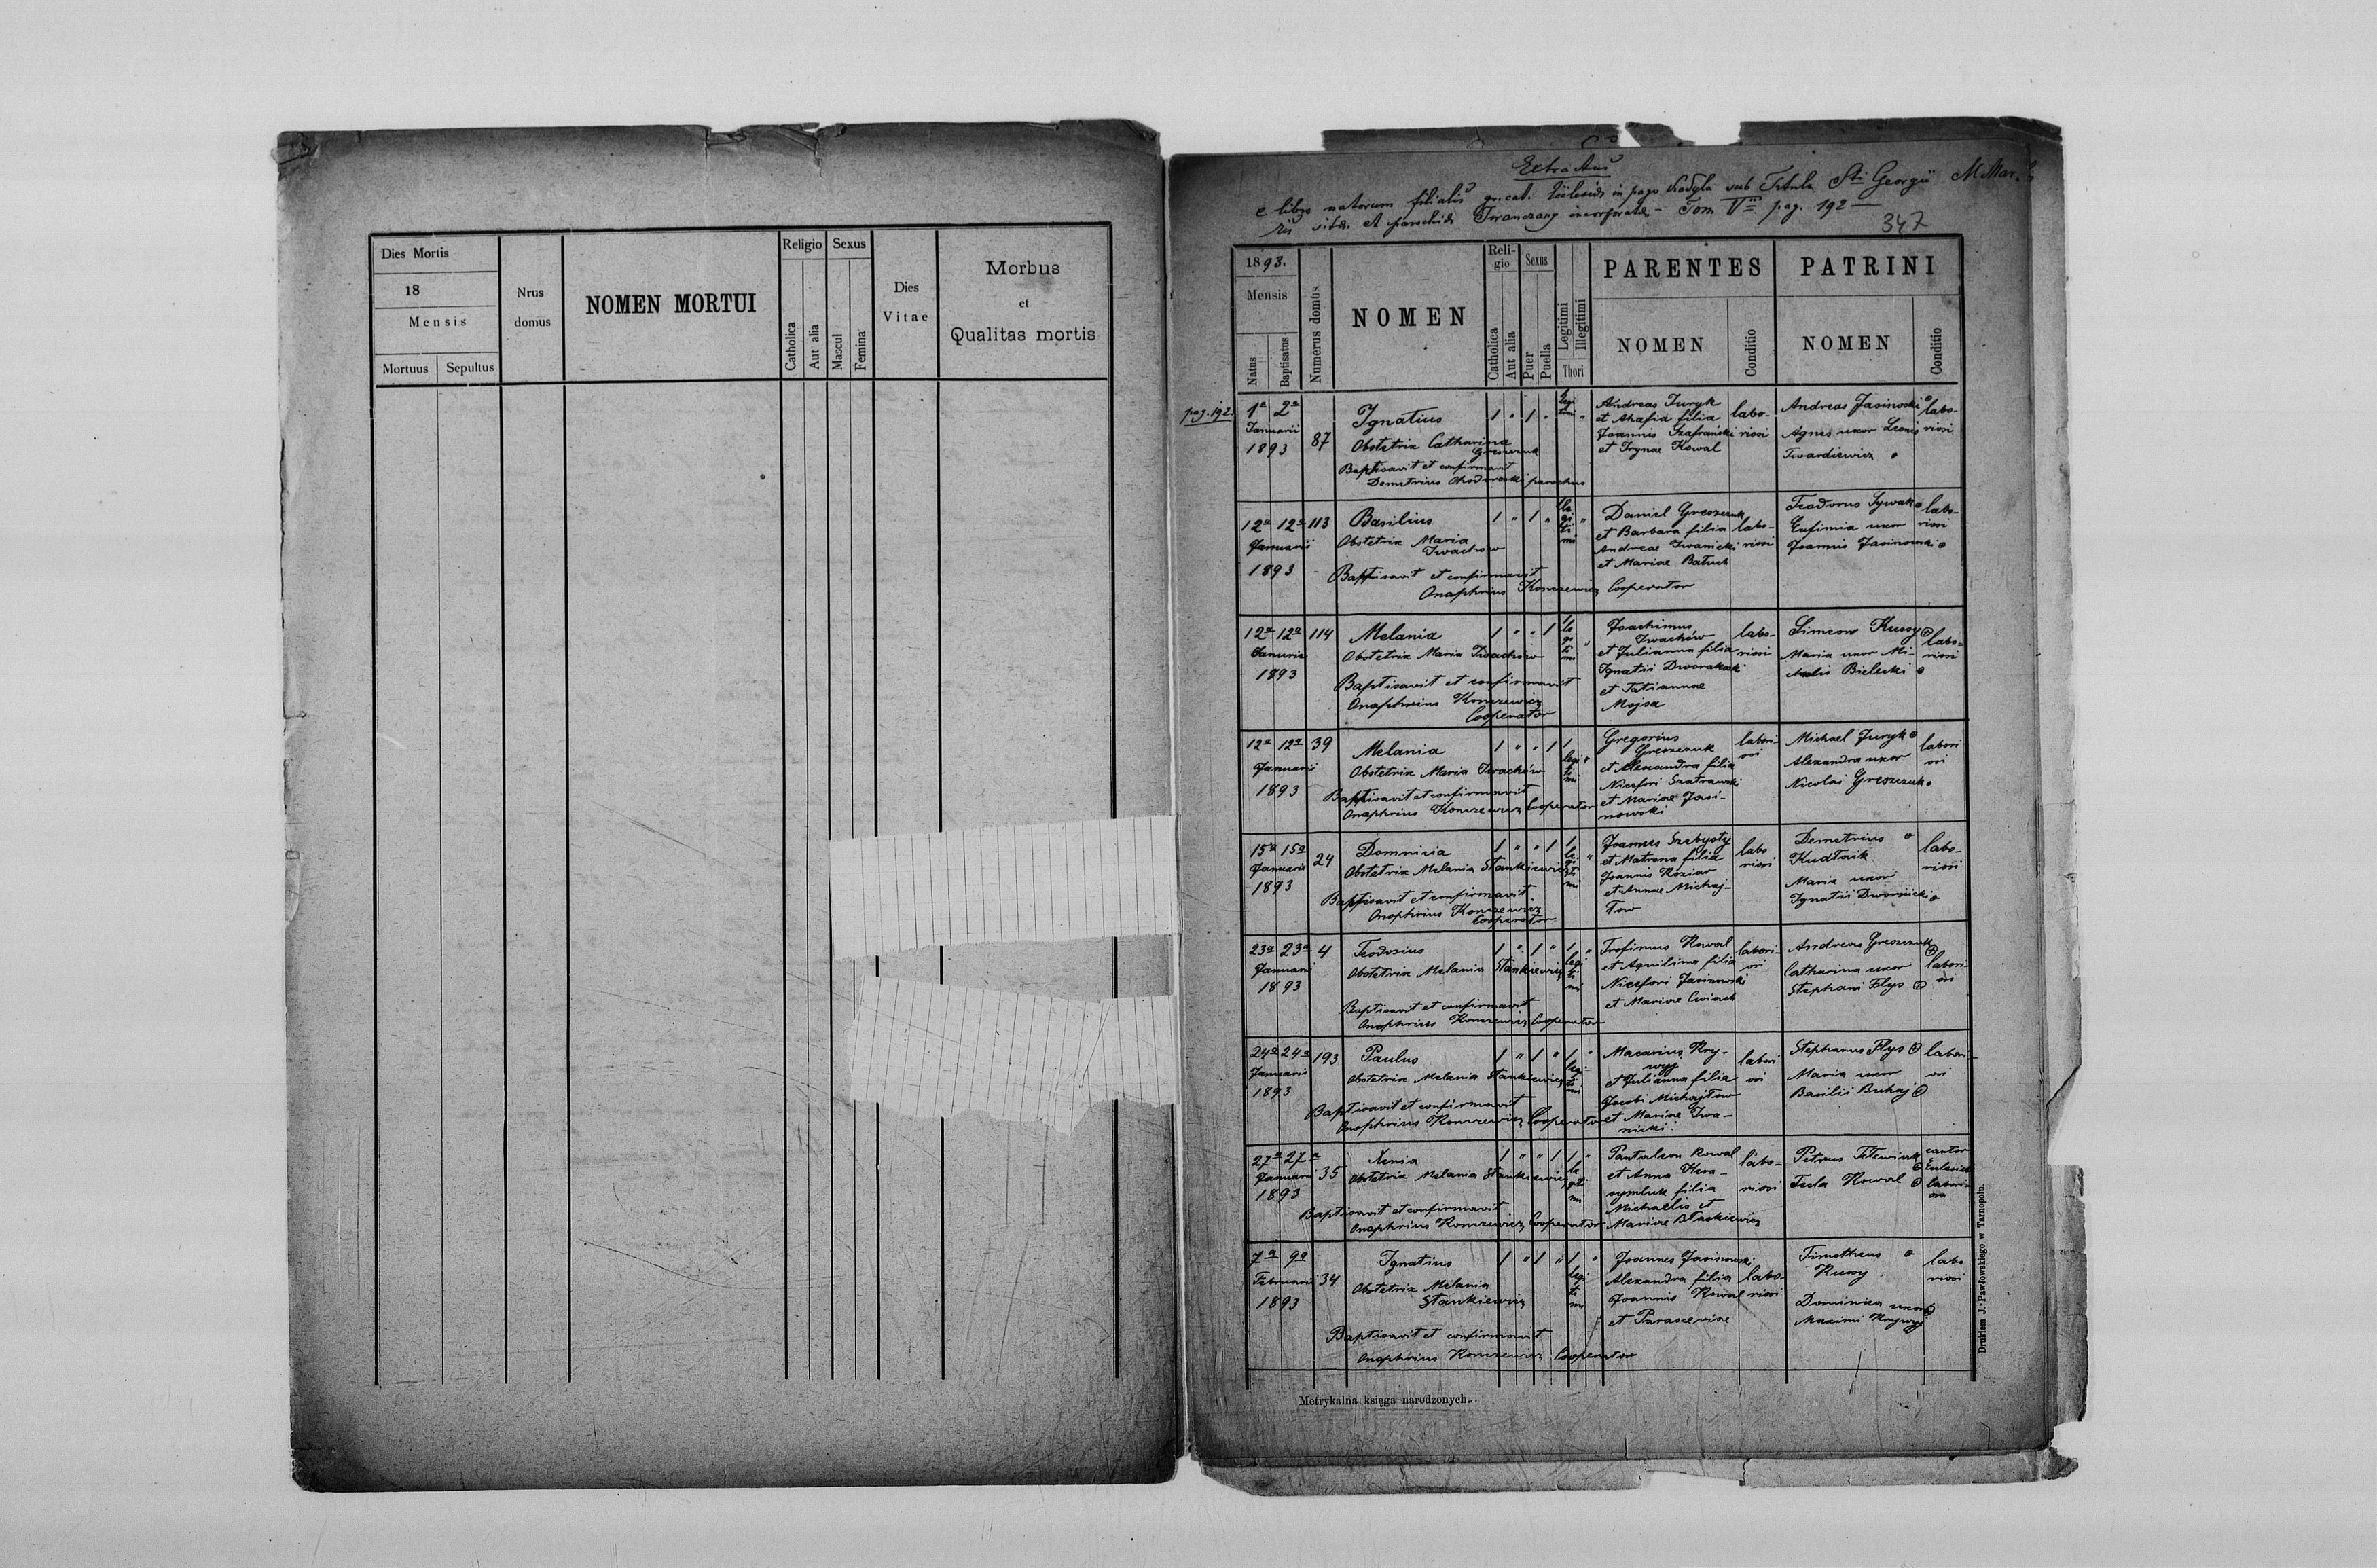 Dies Mortis
18
Mensis
Mortuus Sepultus
Nrus
domus
NOMEN MORTUI
Religio
Catholica
Aut alia
Sexus
Mascul
Femina
Dies
Vitae
Morbus
et
Qualitas mortis
Extractus
e libro natorum filialis gr. cat. Ecclesiae in pago sub Titulo Sti Georgii M Mar.
et parochiae Iwanczany incorporatae - Tom V pag. 192
347
1893.
Mensis
Natus
Baptisatus
Numerus domus
NOMEN
Reli-
gio
Catholica
Aut alia
Sexus
Puer
Puella
Legitimi
Illegitimi
Thori
PARENTES
NOMEN
Conditio
PATRINI
NOMEN
Conditio
pag. 192.
1a 2a
Januarii
1893
87
Ignatius
Obstetrix Catharina
Greszczuk
Baptisavit et confirmavit
Demetrius Chodorowski parochus
1 " 1 "
legi
timi "
Andreas Juryk
et Ahafia filia
Joannis Szafranski
et Irynae Kowal
labo-
riosi
Andreas Jasinowski
Agnes uxor Leonis
Twardiewicz
labo-
riosi
12a 12a 113
Januarii
1893
Basilius
Obstetrix Maria
Iwachów
Baptisavit et confirmavit
Onuphrius Konczewicz Cooperator
1 " 1 "
le
gi
ti
mi
Daniel Greszczuk
et Barbara filia
Andreae Iwanicki
et Mariae Batuch
labo-
riosi
Teodorus Sywak
Eufimia uxor
Joannis Jasinowski
labo-
riosi
12a 12a 114
Januarii
1893
Melania
Obstetrix Maria Iwachów
Baptisavit et confirmavit
Onuphrius Konczewicz
Cooperator
1 " " 1
le
gi
ti
mi
Joachimus
Iwachów
et Julianna filia
Ignatii Dworakoski
et Tatiannae
Mojsa
labo-
riosi
Simeon Kussy
Maria uxor Mi-
chaelis Bielecki
labo-
riosi
12a 12a 39
Januarii
1893
Melania
Obstetrix Maria Iwachów
Baptisavit et confirmavit
Onuphrius Konczewicz Cooperator
1 " " 1 1
legi
ti
mi
Gregorius
Greszczuk
et Alexandra filia
Nicefori Szatrawski
et Mariae Jasi-
nowski
labori-
osi
Michael Juryk
Alexandra uxor
Nicolai Greszczuk
labori
osi
15a 15a
Januarii
1893
24
Domnicia
Obstetrix Melania Stankiewicz
Baptisavit et confirmavit
Onuphrius Konczewicz
Cooperator
1 " " 1 1
legi
ti
mi
Joannes Szebysty
et Matrona filia
Joannis Koziar
et Annae Michaj-
łow
labo
riosi
Demetrius
Kudłaik
Maria uxor
Ignatii Dwornicki
labo-
riosi
23a 23a 4
Januarii
1893
Teodosius
Obstetrix Melania Stankiewicz
Baptisavit et confirmavit
Onuphrius Konczewicz Cooperator
1 " 1 " 1 "
legi
ti
mi
Trofimus Kowal
et Aquilina filia
Nicefori Jasinowski
et Mariae Cwiach
labori-
osi
Andreas Greszczuk
Catharina uxor
Stephani Flys
labori-
osi
24a 24a 193
Januarii
1893
Paulus
Obstetrix Melania Stankiewicz
Baptisavit et confirmavit
Onuphrius Konczewicz Cooperator
1 " 1 " 1 "
legi
ti
mi
Macarius Kry-
wyj
et Julianna filia
Jacobi Michajłow
et Mariae Iwa-
nicki
labori
osi
Stephanus Flys
Maria uxor
Basilii Buhaj
labori-
osi
27a 27a
Januarii 35
1893
Xenia
Obstetrix Melania Stankiewicz
Baptisavit et confirmavit
Onuphrius Konczewicz Cooperator
1 " " 1 1 "
le
giti
mi
Pantaleon Kowal
et Anna
filia
Michaelis et
Mariae Błaskiewicz
labo-
riosi
Petrus
Tecla Kowal
cantor
Ecclesiae
labori-
osa
7a 9a
Februarii 34
1893
Ignatius
Obstetrix Melania
Stankiewicz
Baptisavit et confirmavit
Onuphrius Konczewicz Cooperator
1 " 1 " 1 "
legi
ti
mi
Joannes Jasinowski
Alexandra filia
Joannis Kowal
et Parasceviae
labo-
riosi
Timotheus
Kussy
Dominica uxor
Maximi Krywyj
labo
riosi
Metrykalna księga narodzonych.
Drukiem J. Pawłowskiego w Tarnopolu.